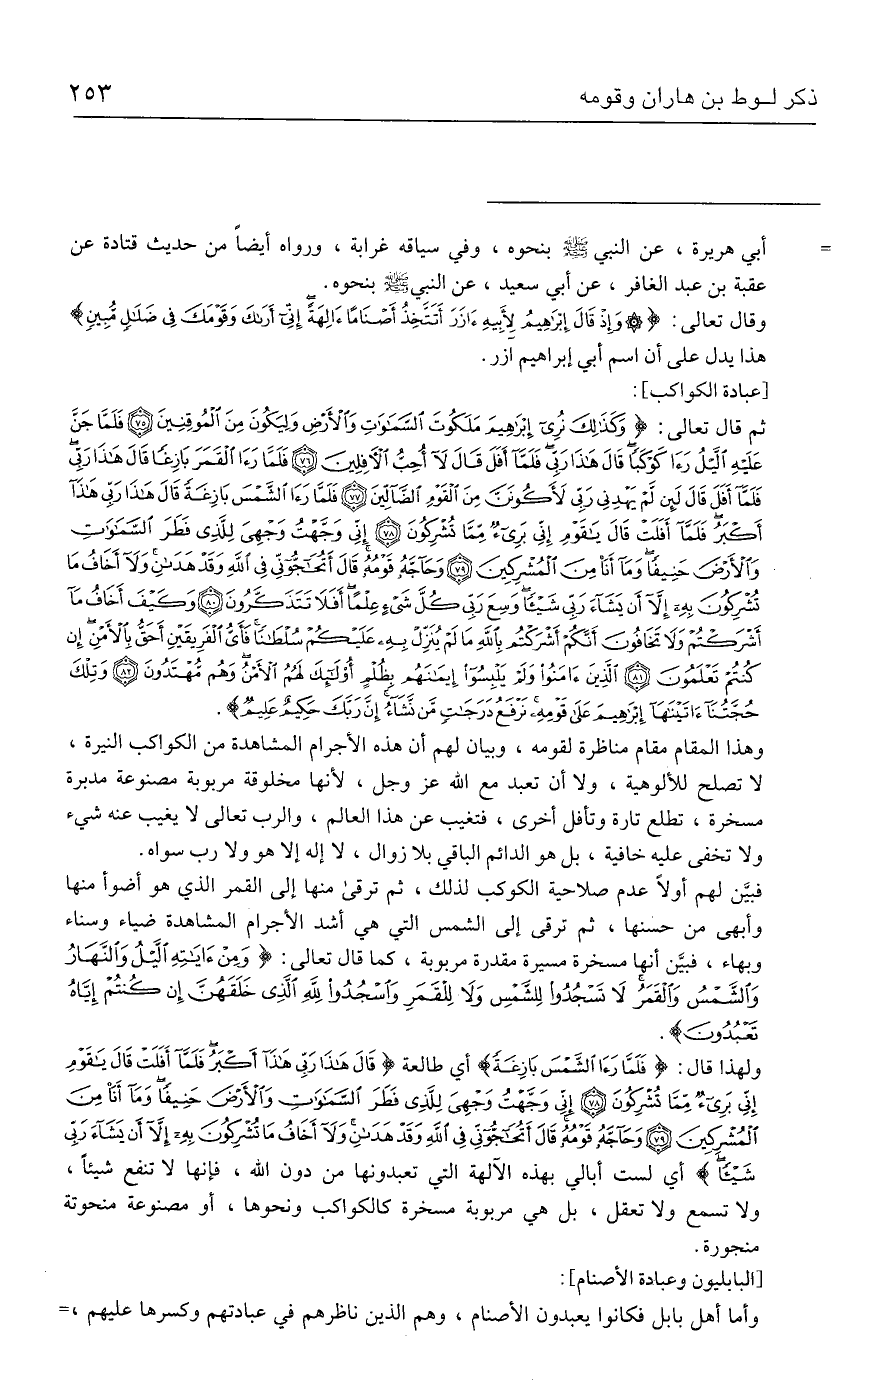 ذكر لـوط بن هاران وقومه ٢٥٣
= أبي هريرة ، عن النبي ﷺ بنحوه ، وفي سياقه غرابة ، ورواه أيضاً من حديث قتادة عن
عقبة بن عبد الغافر ، عن أبي سعيد ، عن النبي ﷺ بنحوه .
وقال تعالى : ﴿ ۞ وَإِذْ قَالَ إِبْرَٰهِيمُ لِأَبِيهِ ءَازَرَ أَتَتَّخِذُ أَصْنَامًا ءَالِهَةً إِنِّىٓ أَرَىٰكَ وَقَوْمَكَ فِى ضَلَٰلٍ مُّبِينٍ ﴾
هذا يدل على أن اسم أبي إبراهيم آزر .
[عبادة الكواكب] :
ثم قال تعالى : ﴿ وَكَذَٰلِكَ نُرِىٓ إِبْرَٰهِيمَ مَلَكُوتَ ٱلسَّمَٰوَٰتِ وَٱلْأَرْضِ وَلِيَكُونَ مِنَ ٱلْمُوقِنِينَ ۝٧٥ فَلَمَّا جَنَّ
عَلَيْهِ ٱلَّيْلُ رَءَا كَوْكَبًا قَالَ هَٰذَا رَبِّى فَلَمَّآ أَفَلَ قَالَ لَآ أُحِبُّ ٱلْءَافِلِينَ ۝٧٦ فَلَمَّا رَءَا ٱلْقَمَرَ بَازِغًا قَالَ هَٰذَا رَبِّى
فَلَمَّآ أَفَلَ قَالَ لَئِن لَّمْ يَهْدِنِى رَبِّى لَأَكُونَنَّ مِنَ ٱلْقَوْمِ ٱلضَّآلِّينَ ۝٧٧ فَلَمَّا رَءَا ٱلشَّمْسَ بَازِغَةً قَالَ هَٰذَا رَبِّى هَٰذَآ
أَكْبَرُ فَلَمَّآ أَفَلَتْ قَالَ يَٰقَوْمِ إِنِّى بَرِىٓءٌ مِّمَّا تُشْرِكُونَ ۝٧٨ إِنِّى وَجَّهْتُ وَجْهِىَ لِلَّذِى فَطَرَ ٱلسَّمَٰوَٰتِ
وَٱلْأَرْضَ حَنِيفًا وَمَآ أَنَا۠ مِنَ ٱلْمُشْرِكِينَ ۝٧٩ وَحَآجَّهُۥ قَوْمُهُۥ قَالَ أَتُحَٰٓجُّوٓنِّى فِى ٱللَّهِ وَقَدْ هَدَىٰنِ وَلَآ أَخَافُ مَا
تُشْرِكُونَ بِهِۦٓ إِلَّآ أَن يَشَآءَ رَبِّى شَيْـًٔا وَسِعَ رَبِّى كُلَّ شَىْءٍ عِلْمًا أَفَلَا تَتَذَكَّرُونَ ۝٨٠ وَكَيْفَ أَخَافُ مَآ
أَشْرَكْتُمْ وَلَا تَخَافُونَ أَنَّكُمْ أَشْرَكْتُم بِٱللَّهِ مَا لَمْ يُنَزِّلْ بِهِۦ عَلَيْكُمْ سُلْطَٰنًا فَأَىُّ ٱلْفَرِيقَيْنِ أَحَقُّ بِٱلْأَمْنِ إِن
كُنتُمْ تَعْلَمُونَ ۝٨١ ٱلَّذِينَ ءَامَنُوا۟ وَلَمْ يَلْبِسُوٓا۟ إِيمَٰنَهُم بِظُلْمٍ أُو۟لَٰٓئِكَ لَهُمُ ٱلْأَمْنُ وَهُم مُّهْتَدُونَ ۝٨٢ وَتِلْكَ
حُجَّتُنَآ ءَاتَيْنَٰهَآ إِبْرَٰهِيمَ عَلَىٰ قَوْمِهِۦ نَرْفَعُ دَرَجَٰتٍ مَّن نَّشَآءُ إِنَّ رَبَّكَ حَكِيمٌ عَلِيمٌ ﴾ .
وهذا المقام مقام مناظرة لقومه ، وبيان لهم أن هذه الأجرام المشاهدة من الكواكب النيرة ،
لا تصلح للألوهية ، ولا أن تعبد مع الله عز وجل ، لأنها مخلوقة مربوبة مصنوعة مدبرة
مسخرة ، تطلع تارة وتأفل أخرى ، فتغيب عن هذا العالم ، والرب تعالى لا يغيب عنه شيء
ولا تخفى عليه خافية ، بل هو الدائم الباقي بلا زوال ، لا إله إلا هو ولا رب سواه .
فبيَّن لهم أولاً عدم صلاحية الكوكب لذلك ، ثم ترقىٰ منها إلى القمر الذي هو أضوأ منها
وأبهى من حسنها ، ثم ترقى إلى الشمس التي هي أشد الأجرام المشاهدة ضياء وسناء
وبهاء ، فبيَّن أنها مسخرة مسيرة مقدرة مربوبة ، كما قال تعالى : ﴿ وَمِنْ ءَايَٰتِهِ ٱلَّيْلُ وَٱلنَّهَارُ
وَٱلشَّمْسُ وَٱلْقَمَرُ لَا تَسْجُدُوا۟ لِلشَّمْسِ وَلَا لِلْقَمَرِ وَٱسْجُدُوا۟ لِلَّهِ ٱلَّذِى خَلَقَهُنَّ إِن كُنتُمْ إِيَّاهُ
تَعْبُدُونَ ﴾ .
ولهذا قال : ﴿ فَلَمَّا رَءَا ٱلشَّمْسَ بَازِغَةً ﴾ أي طالعة ﴿ قَالَ هَٰذَا رَبِّى هَٰذَآ أَكْبَرُ فَلَمَّآ أَفَلَتْ قَالَ يَٰقَوْمِ
إِنِّى بَرِىٓءٌ مِّمَّا تُشْرِكُونَ ۝٧٨ إِنِّى وَجَّهْتُ وَجْهِىَ لِلَّذِى فَطَرَ ٱلسَّمَٰوَٰتِ وَٱلْأَرْضَ حَنِيفًا وَمَآ أَنَا۠ مِنَ
ٱلْمُشْرِكِينَ ۝٧٩ وَحَآجَّهُۥ قَوْمُهُۥ قَالَ أَتُحَٰٓجُّوٓنِّى فِى ٱللَّهِ وَقَدْ هَدَىٰنِ وَلَآ أَخَافُ مَا تُشْرِكُونَ بِهِۦٓ إِلَّآ أَن يَشَآءَ رَبِّى
شَيْـًٔا ﴾ أي لست أبالي بهذه الآلهة التي تعبدونها من دون الله ، فإنها لا تنفع شيئاً ،
ولا تسمع ولا تعقل ، بل هي مربوبة مسخرة كالكواكب ونحوها ، أو مصنوعة منحوتة
منجورة .
[البابليون وعبادة الأصنام] :
وأما أهل بابل فكانوا يعبدون الأصنام ، وهم الذين ناظرهم في عبادتهم وكسرها عليهم ، =